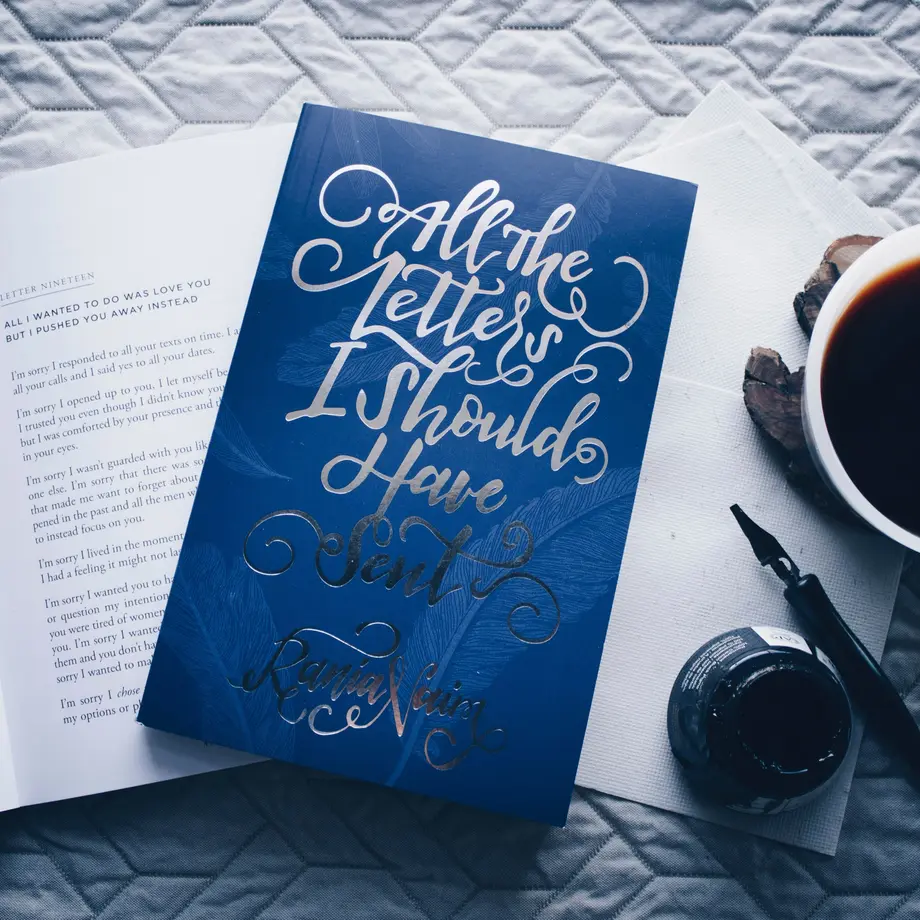 LETTER NINETEEN
ALL I WANTED TO DO WAS LOVE YOU
BUT I PUSHED YOU AWAY INSTEAD
I'm sorry I responded to all your texts on time. I
all your calls and I said yes to all your dates.
I'm sorry I opened up to you. I let myself
I trusted you even though I didn't know
but I was comforted by your presence and
in your eyes.
I'm sorry I wasn't guarded with you
one else. I'm sorry that there was
that made me want to forget about
pened in the past and all the men
to instead focus on you.
I'm sorry I lived in the moment
I had a feeling it might not
I'm sorry I wanted you to
or question my intention
you were tired of women
you. I'm sorry I wanted
them and you don't
sorry I wanted to
I'm sorry I chose
my options or
All the
Letters
I Should
Have
Sent
Rania Naim